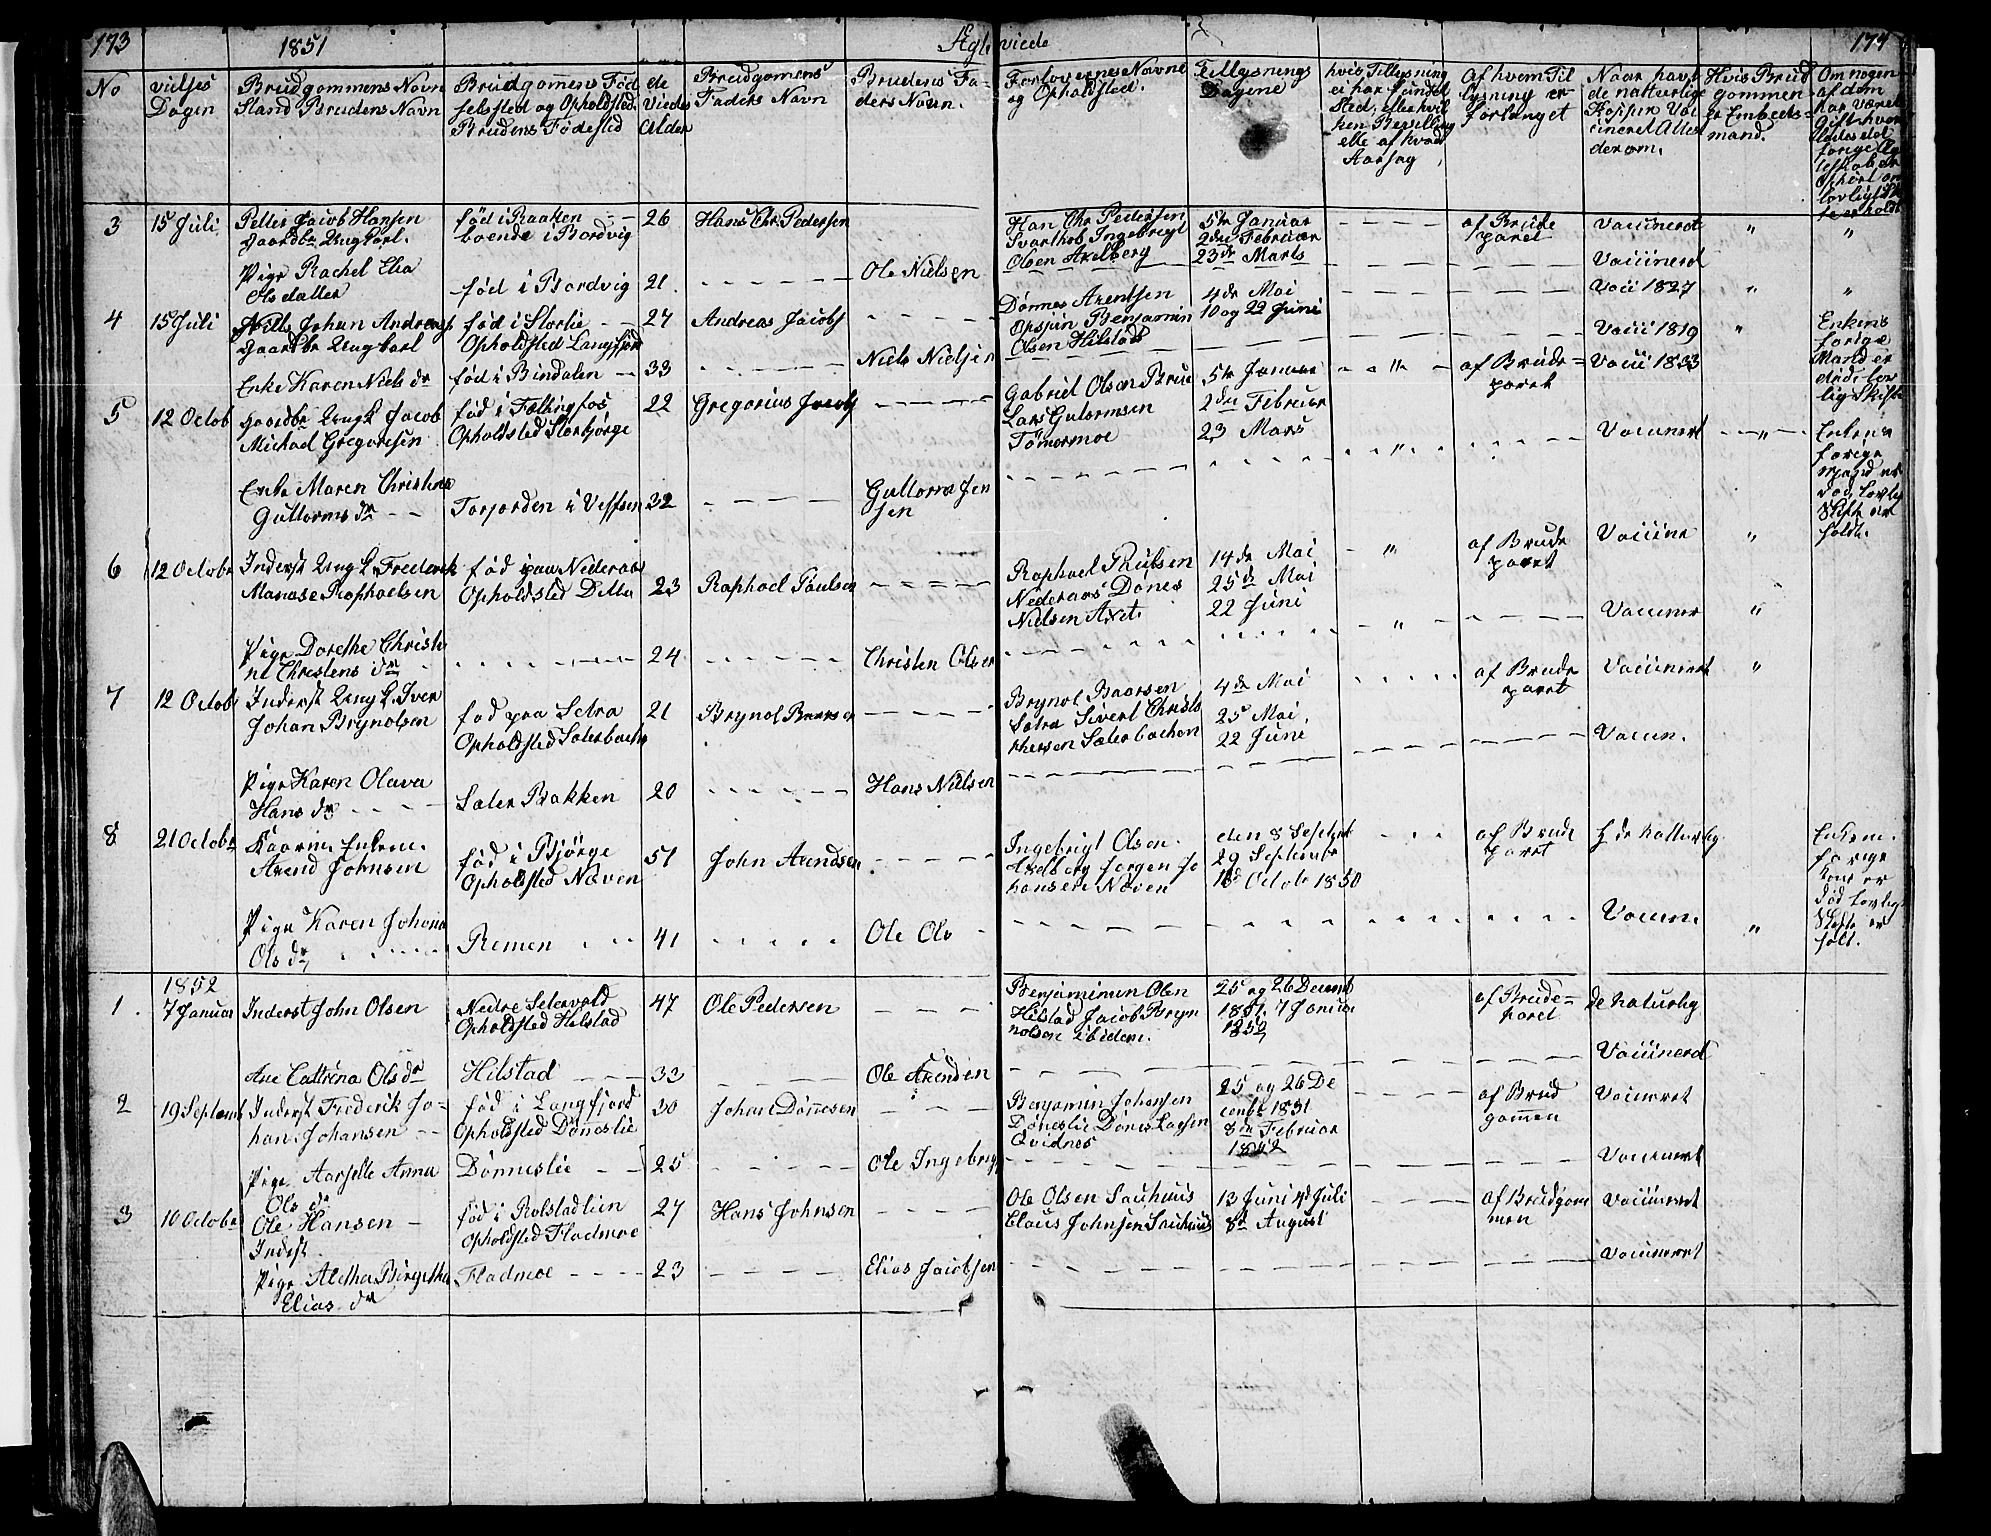 173
1851
Ægte viede
174
No
vielses
Dagen
Brudgommens Navn
Stand Brudens Navn
Brudgomens Fød
selssted og Opholdsted
Brudens Fødested
de
Viedes
Alder
Brudgomens
Faders Navn
Brudens Fa-
ders Navn.
Forlovernes Navne
og Opholdsted.
Tillysnings
Dagene
hvis Tillysning
ei har fundet
Sted, efter hvil
ken Bevilling
elle af hvad
Aarsag
Af hvem Til
lysning er
forlanget
Naar havt
de naturlige
Kopper Vac
cineret Attest
derom.
Hvis Brud
gommen
er Embeds=
mand.
Om nogen
af dem
har været
Gift hvor
ledes det
forige Æg
teskab er
ophørt om
lovligt Skif
te er holdt
3
15 Juli
Petter Jacob Hansen
gaardbr Ungkarl.
født i Raaken
boende i Bordvig
26
Hans Chr. Pedersen
Han Chr Pedersen
Svarthob Ingebregt
Olsen Axelberg
5te Januar
2den Februar
23de Marts
af Brude
paret
Vaccinerd
Pige Rachel Elia
Olsdatter
født i Bordvig
21
Ole Nielsen
Vaccinerd
4
15 Juli
Nills Johan Andreas
gaardbr Ungkarl
fød i Storlie
Opholdsted Langfjord
27
Andreas Jacobs
Dønnes Arentsen
Opsjøn Benjamin
Olsen Hilstad
4de Mai
10 og 22 Juni
Vacci 1827
Enke Karen Niels dr
fød i Bindalen
33
Niels Nielsen
Vacci 1819
Enkens
forige
Mand er
død lov
lig Skifte
5
12 Octob
gaardbr Ungk Jacob
Michael Gregoresen
fød i Fælhingfos
Opholdsted Storbjørge
22
Gregorius Jacobs
Gabriel Olsen Brue
Lars Gutormsen
Tømermoe
5te Januar
2den Februar
23 Mars
af Brude=
paret
Vacci 1833
Enke Maren Christine
Guttorms dr
Forjorden i Veffsen
32
Guttorm Jen
sen
Vaccinert
Enkens
forige
Mand er
død Lovlig
Skifte er
holdt.
6
12 Octobr
Inderst Ungk. Frederik
Manase Raphaelsen
fød paa Nederaas
Opholdsted Ditto
23
Raphael Paulsen
Raphael Paulsen
Nederaas Dønes
Nielsen Axet.
14de Mai
25de Mai
22 Juni
af Brude
paret
Vaccine
Pige Dorethe Christi
ne Christens dr
24
Christen Olsen
Vacciner
7
12 Octobr
Inderst Ungk. Iver
Johan Brynolsen
fød paa Setra
Opholdsted Sæterbachen
21
Brynol Baarsen
Brynol Baarsen
Sætra Sivert Christo
phersen Sæterbachen
4de Mai
25 Mai.
22 Juni
af Brude
paret
Vaccinert
Pige Karen Olava
Hans dr
Sæter Bakken
20
Hans Nielsen
Vaccin.
8
21 Octobr
Kaarm. Enkem.
Arend Johnsen
fød i Bjørge
Opholdsted Næven
51
John Arendsen
Ingebrigt Olsen.
Axelberg Jørgen Jo
hansen Næven
den 8 Septbr
29 September
18de Octobr 1850
af Brude
paret
h de natturlig
Enkem.
forige
Kone er
død Lovligt
Skifte er
holt.
Pige Karen Johana
Ols dr
Remen
41
Ole Ols
Vaccin.
1852
1
7 Januar
Inderst John Olsen
Nedre Setervold
Opholdsted Hilstad
47
Ole Pedersen
Benjaminn Olen
Hilstad Jacob Bryn
nolsen ibidem.
25 og 26 Decemb
1851. 7 Januar
1852
af Brude=
paret
de naturlig
Ane Cattrina Ols dr
Hilstad
33
Ole Arendsen
Vaccinerd
2
19 Septemb
Inderst Frederik Jo=
han Johansen
fød i Langfjord
Opholdsted Dønneslie
30
Johan Dønnesen
Benjamin Johansen
Døneslie Dønes Larsen
Qvidnes
25 og 26 De
cembr 1851
8de Februar
1852
af Brud
gommen
Vaccineret
Pige Aarselle Anna
Ols dr
Dønneslie
25
Ole Ingebrigt
Vaccinert
3
10 Octobr
Ole Hansen
Inderst
fød i Rolstadlien
Opholdsted Fladmoe
27
Hans Johnsen
Ole Olsen Sauhuus
Claus Johnsen Sauhuus
13 Juni 4de Juli
8de August
af Brudgom
men
Vaccineret
Pige Aletha Birgitha
Elias dr
Fladmoe
23
Elias Jacobsen
Vaccineret